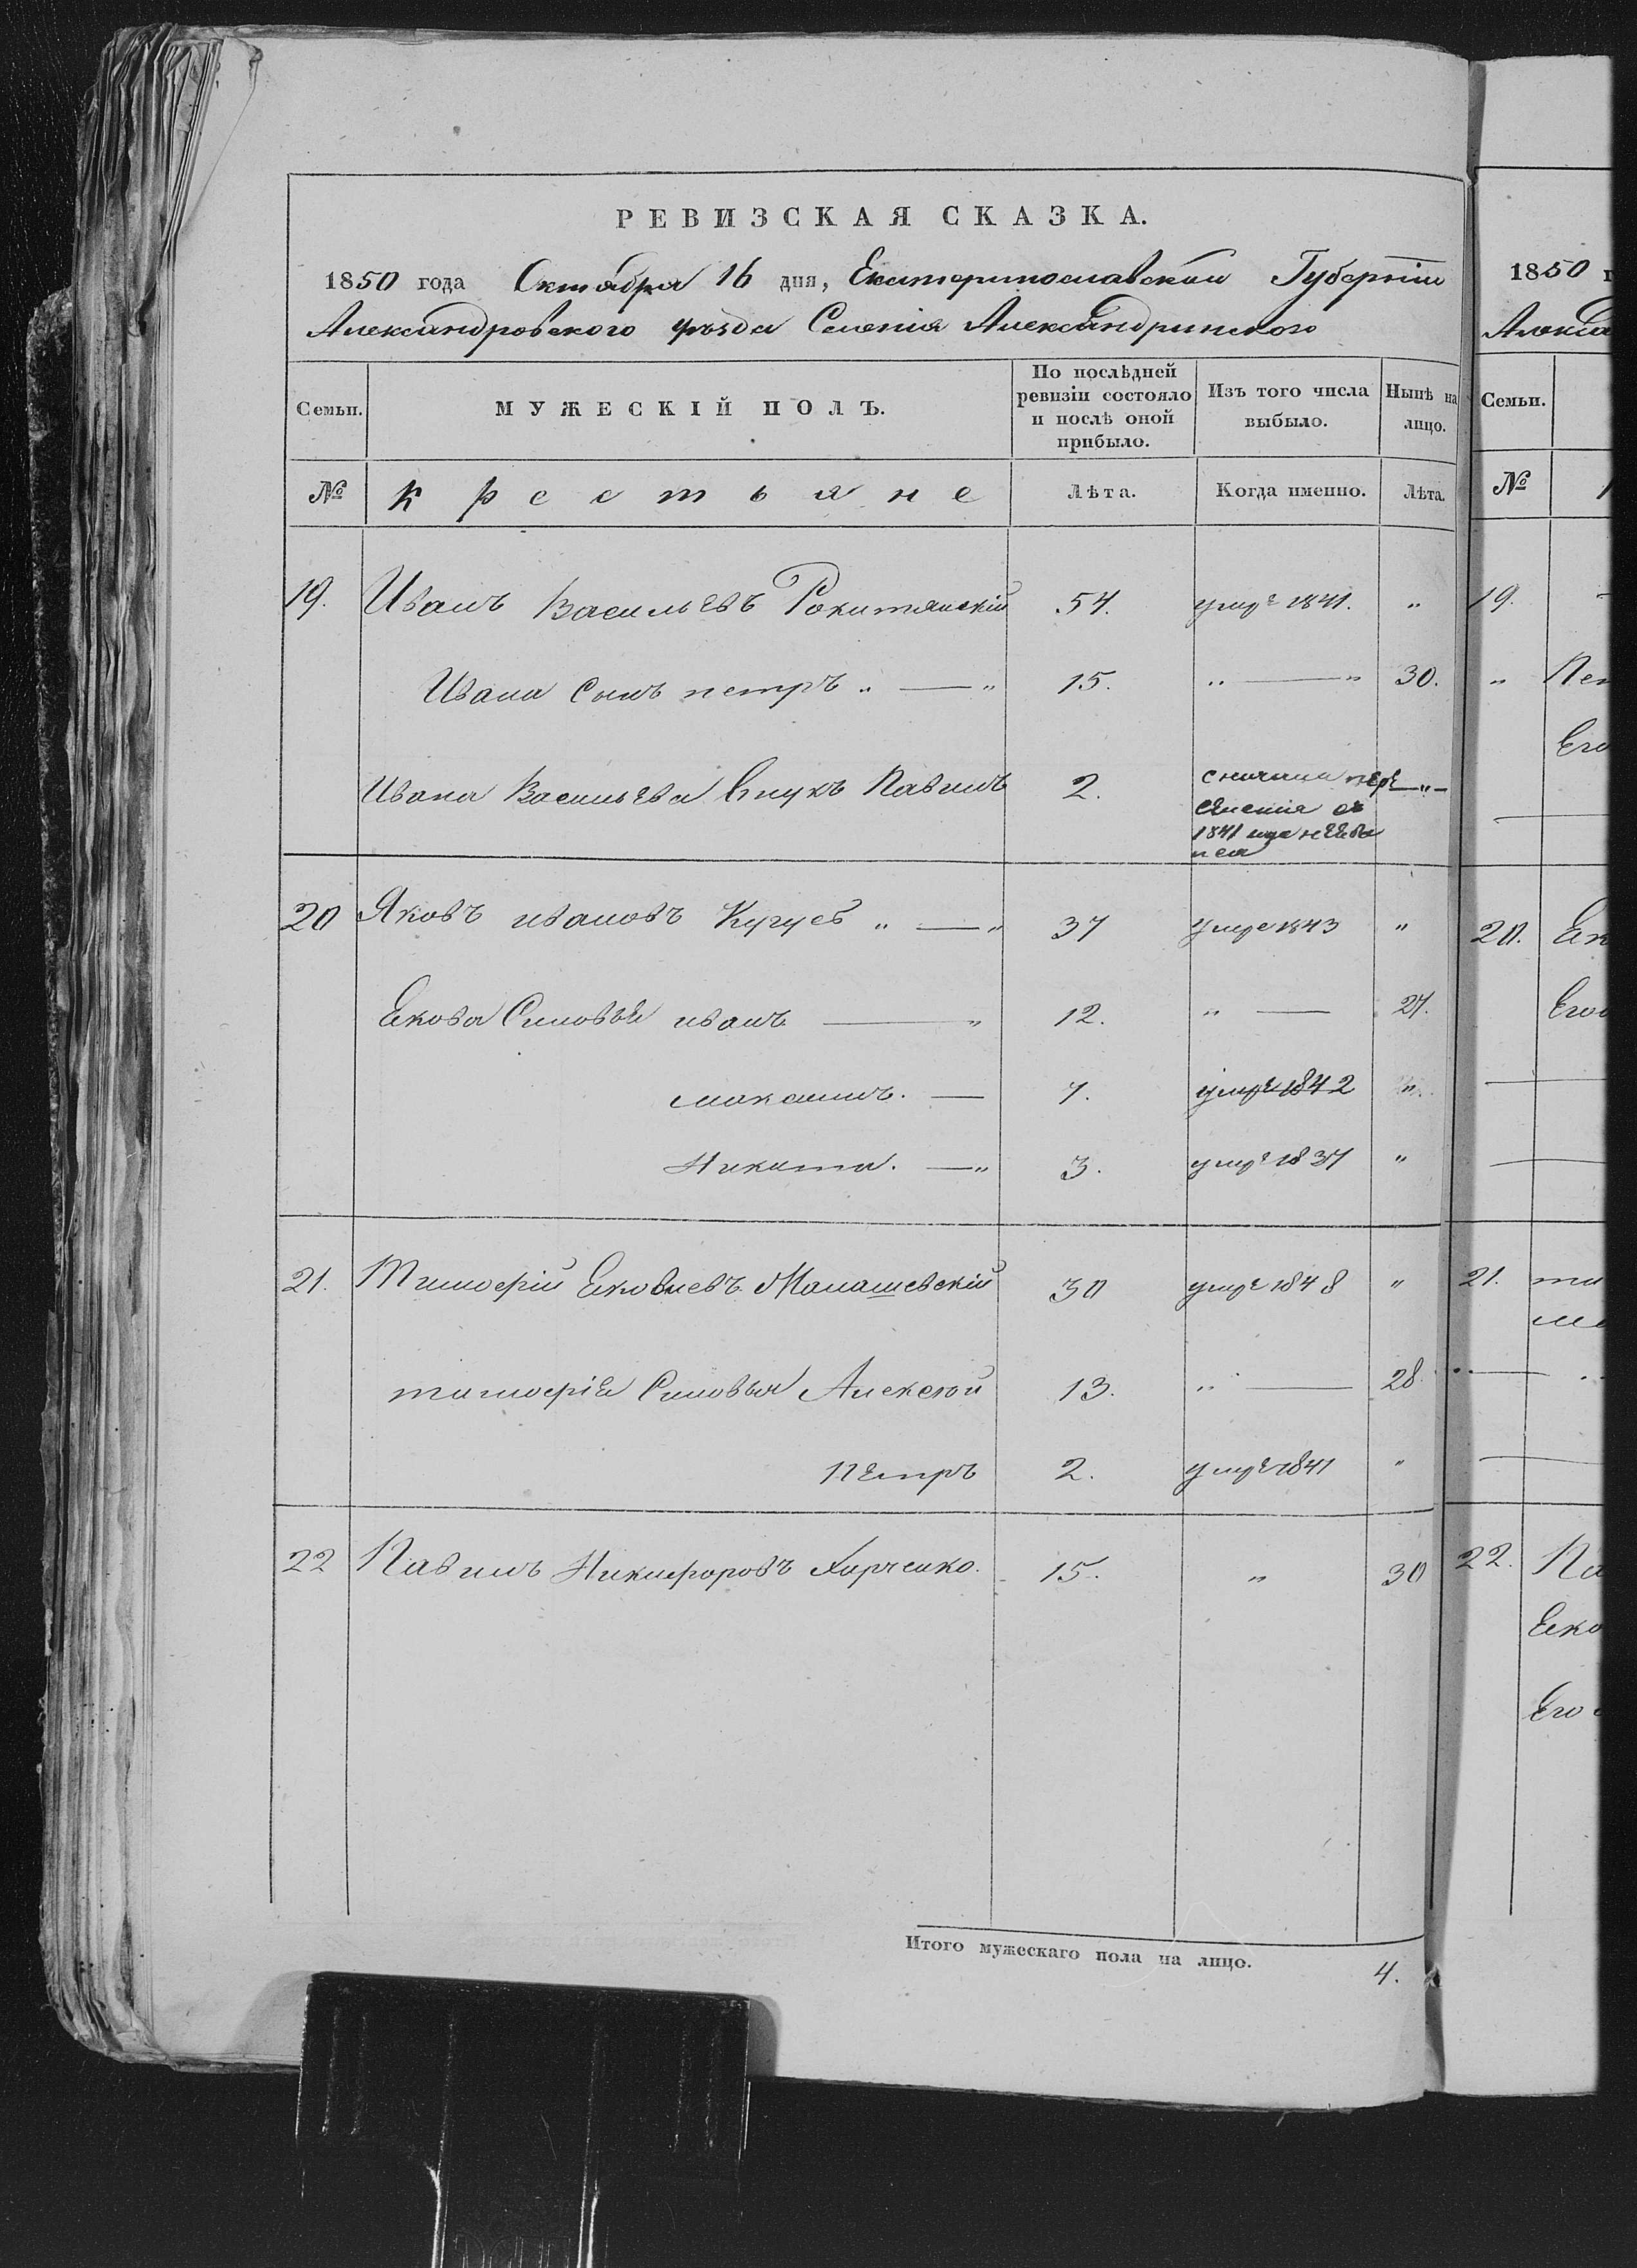 РЕВИЗСКАЯ СКАЗКА.
1850 года Октября 16 дня, Екатеринославской Губерніи
Александровского уѣзда Селенія Александринского
Семьи. МУЖЕСКІЙ ПОЛЪ. По послѣдней ревизіи состояло и послѣ оной прибыло. Изъ того числа выбыло. Нынѣ на лицо.
№ Крестьяне Лѣта. Когда именно. Лѣта.
19. Иванъ Васильевъ Рокитянскій 54. умре 1841. „
Ивана Сынъ петръ „ — „ 15. „ — „ 30.
Ивана Васильева Внукъ Павилъ 2. пере — „ —
селения
1841
20 Яковъ ивановъ „ — „ 37 умре 1843 „
Екова Синовья иванъ — „ 12. „ — 27.
7. умре 1842 „
Никита. — „ 3. умре 1837 „
21. Тимофій Ековлевъ Малашевскій 30 умре 1848 „
тимофія Синовья Алексѣй 13. „ — 28
Петръ 2. умре 1841 „
22 Павилъ Никифоровъ Харченко. 15. „ 30
Итого мужескаго пола на лицо. 4.
1850 г
Алекса
Семьи.
№
19.
„ Пет
Его
20. Ек
Его
21. ти
22. Па
Еко
Его